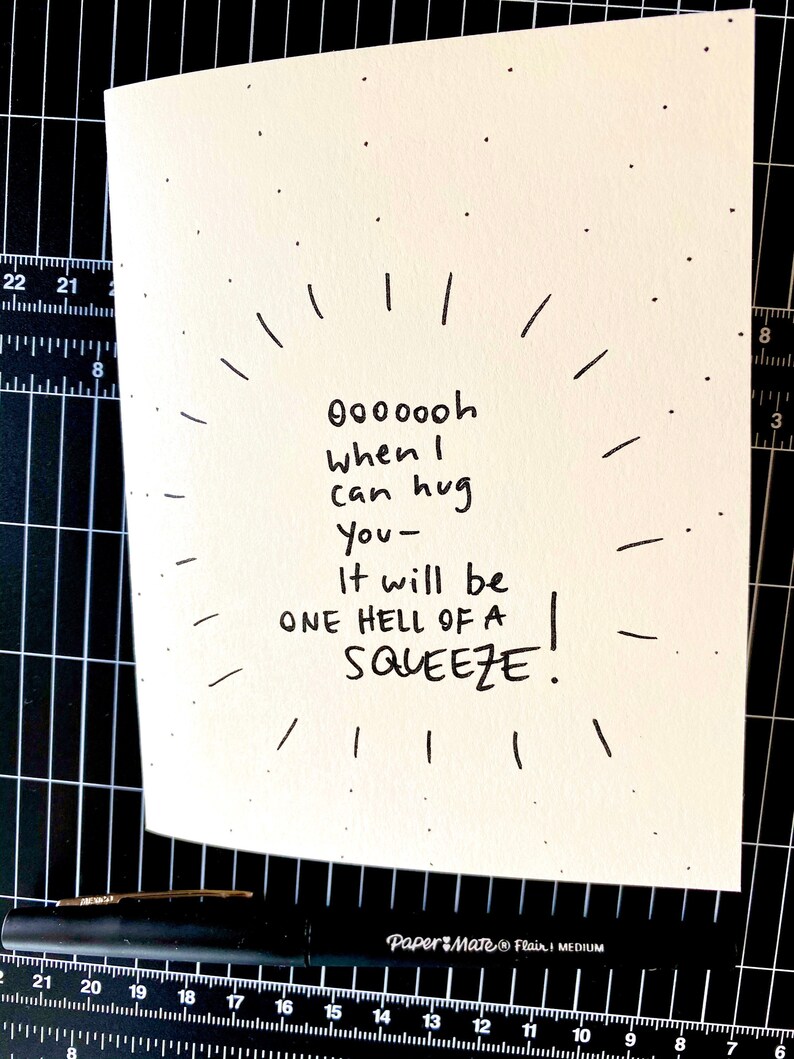 22 21
8
8
3
ooooooh
when I
can hug
you–
It will be
ONE HELL OF A
SQUEEZE!
MEXICO
Paper Mate® Flair! MEDIUM
21 20 19 18 17 16 15 14 13 12 11 10 9 8 7 6
8